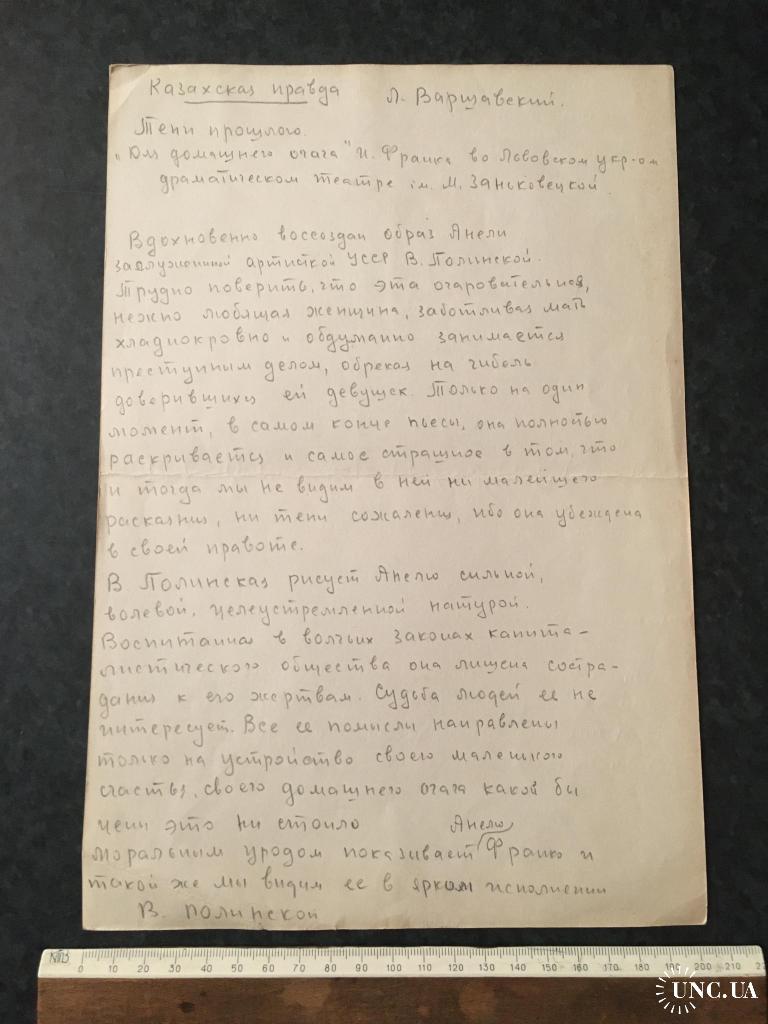 Казахская правда Л. Варшавский.
Тени прошлого.
"Для домашнего очага" И. Франка во Львовском укр-ом
драматическом театре им. М. Заньковецкой.
Вдохновенно воссоздан образ Анели
заслуженной артисткой УССР В. Полинской.
Трудно поверить, что эта очаровательная,
нежно любящая женщина, заботливая мать
хладнокровно и обдуманно занимается
преступным делом, обрекая на гибель
доверившихся ей девушек. Только на один
момент, в самом конце пьесы, она полностью
раскривается и самое страшное в том, что
и тогда мы не видим в ней ни малейшего
расказния, ни тени сожаления, ибо она убеждена
в своей правоте.
В. Полинская рисует Анелю сильной,
волевой, целеустремленной натурой.
Воспитанна в волчьих законах капита-
листического общества она лишена состра-
дания к его жертвам. Судьба людей ее не
интересует. Все ее помисли направлены
только на устройство своего малешкого
счастья, своего домашнего очага какой бы
цени это ни стоило
моральным уродом показивает Анелю Франко и
такой же мы видим ее в ярком исполнении
В. Полинской
0 10 20 30 40 50 60 70 80 90 100 110 120 130 140 150 160 170 180 190 200 210
UNC.UA